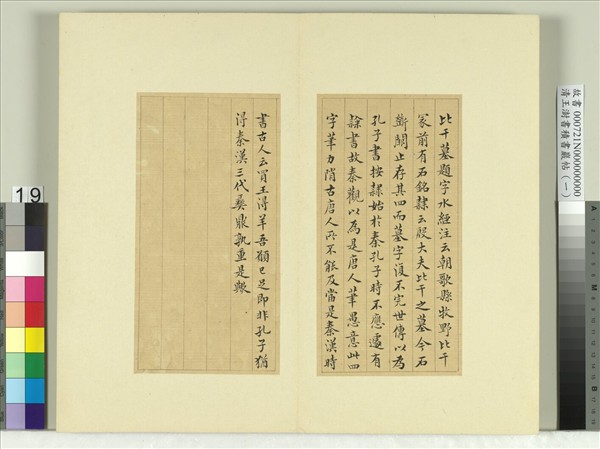 比干墓題字水經注云朝歌縣牧野比干
冢前有石銘隸云殷大夫比干之墓今石
斷闕止存其四而墓字復不完世傳以為
孔子書按隸始於秦孔子時不應遽有
隸書故秦觀以為是唐人筆愚意此四
字筆力陗古唐人所不能及當是秦漢時
書古人云買王得羊吾願已足即非孔子猶
得秦漢三代彝鼎孰重是歟
故書 000721N000000000
清王澍書積書巖帖(一)
19